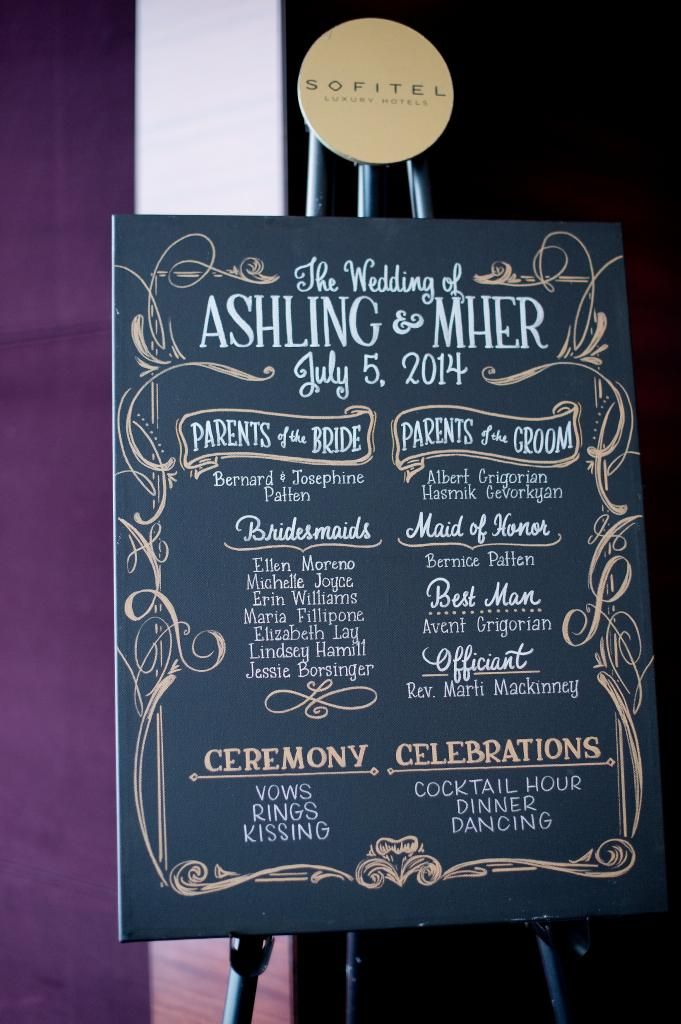 SOFITEL
LUXURY HOTELS
The Wedding of
ASHLING & MHER
July 5, 2014
PARENTS of the BRIDE
Bernard & Josephine
Patten
Bridesmaids
Ellen Moreno
Michelle Joyce
Erin Williams
Maria Fillipone
Elizabeth Lay
Lindsey Hamill
Jessie Borsinger
PARENTS of the GROOM
Albert Grigorian
Hasmik Gevorkyan
Maid of Honor
Bernice Patten
Best Man
Avent Grigorian
Officiant
Rev. Marti Mackinney
CEREMONY
VOWS
RINGS
KISSING
CELEBRATIONS
COCKTAIL HOUR
DINNER
DANCING